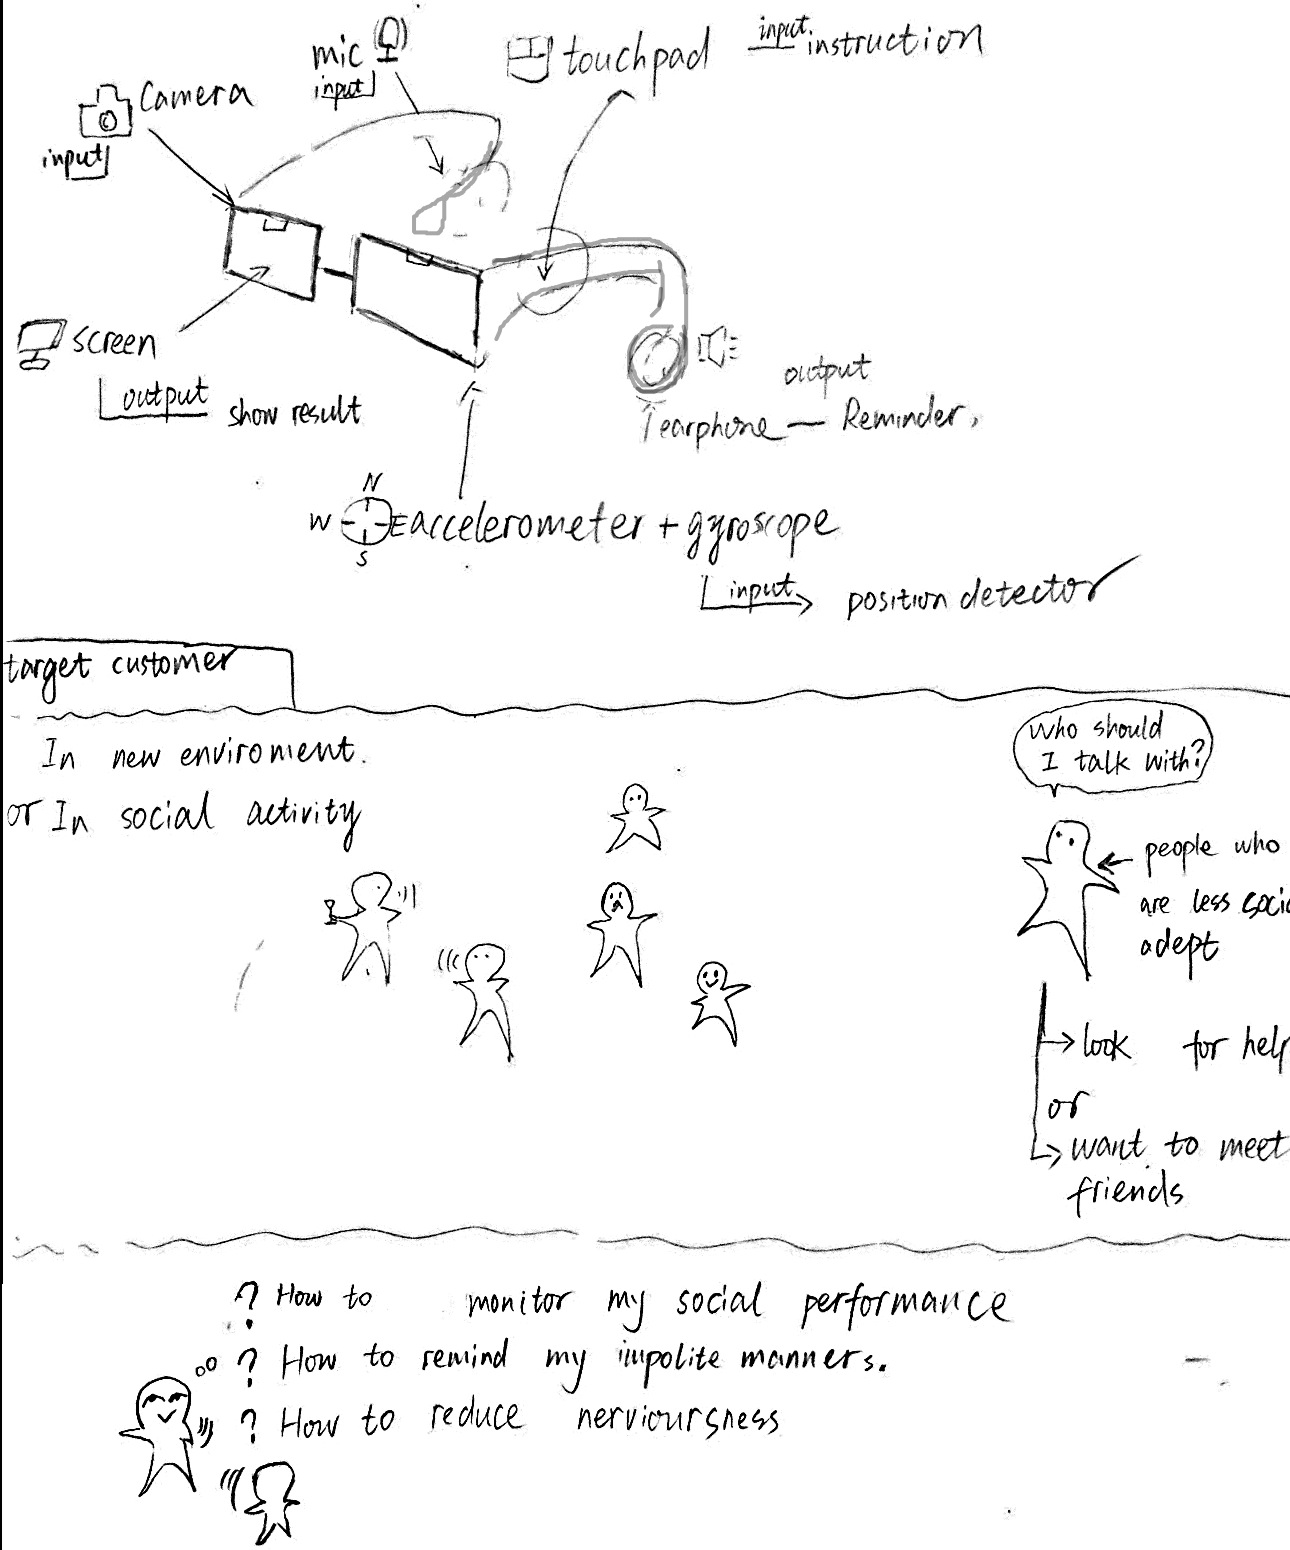 mic
input
touchpad input instruction
Camera
input
screen
output show result
output
earphone — Reminder,
N
W E accelerometer + gyroscope
S
input position detector
target customer
In new enviroment.
or In social activity
Who should
I talk with?
people who
are less socia
adept
look for help
or
want to meet
friends
? How to monitor my social performance
? How to remind my impolite manners.
? How to reduce nervioursness